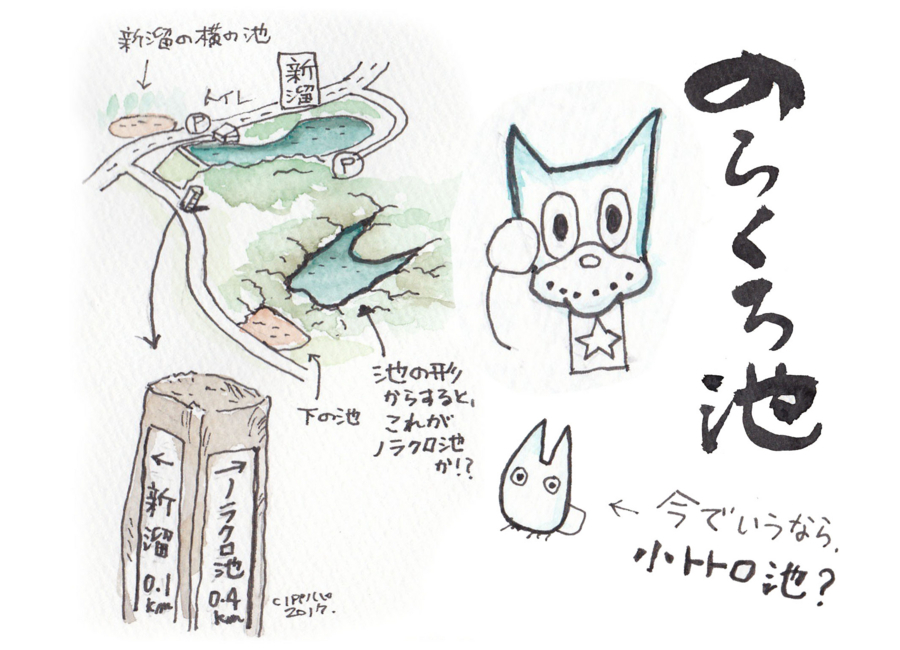 のらくろ池
新溜の横の池
トイレ
新溜
P
P
下の池
池の形
からすると、
これが
ノラクロ池
か!?
←新溜
0.1
km
→ノラクロ池
0.4
km
2017.
←今でいうなら、
小トトロ池?